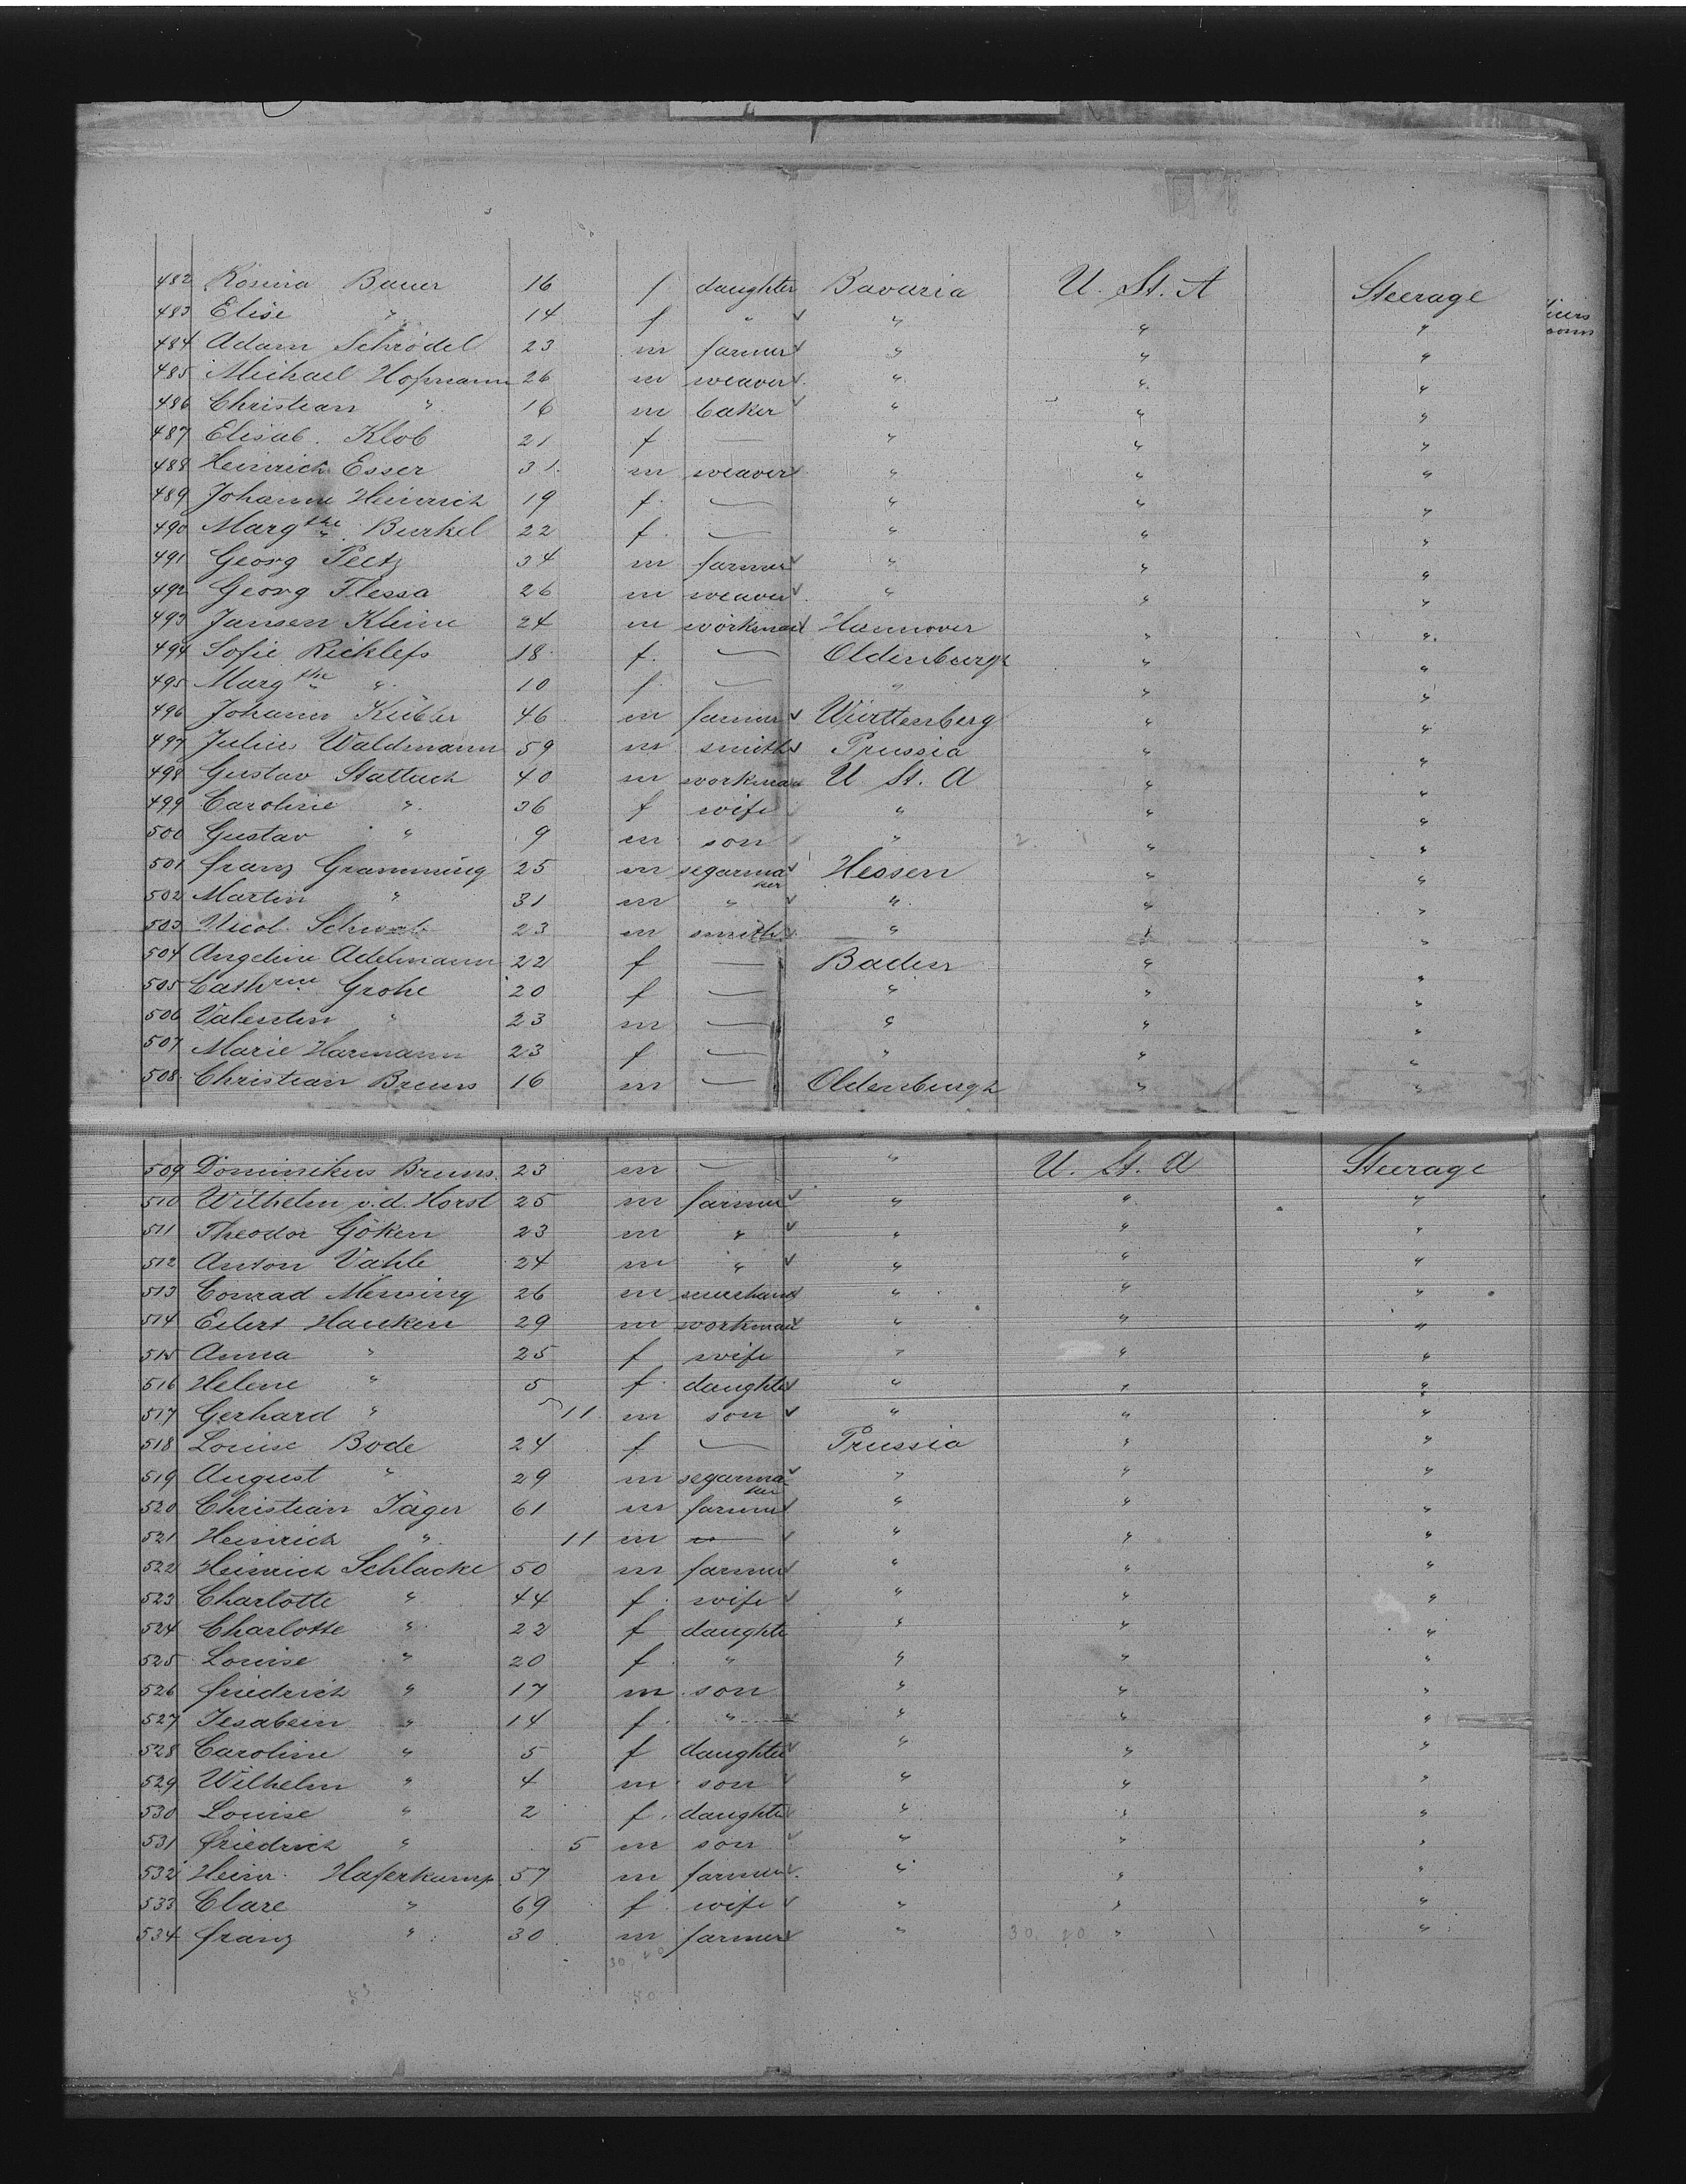 482 Rosina Bauer 16 f daughter Bavaria U. St. A Steerage
483 Elise " 14 f " " " "
484 Adam Schrödel 23 m farmer " " "
485 Michael Hofmann 26 m weaver " " "
486 Christian " 16 m baker " " "
487 Elisab. Klob 21 f — " " "
488 Heinrich Esser 31 m weaver " " "
489 Johanne Heinrich 19 f. — " " "
490 Marg the Burkel 22 f. — " " "
491 Georg Peetz 34 m farmer " " "
492 Georg Flessa 26 m weaver " " "
493 Jansen Kleine 24 m workman Hannover " "
494 Sofie Ricklefs 18 f. — Oldenburgh " "
495 Marg the " 10 f. — " " "
496 Johann Kübler 46 m farmer Württenberg " "
497 Julius Waldmann 59 m smith Prussia " "
498 Gustav Stattuch 40 m workman U St. A " "
499 Caroline " 36 f wife " " "
500 Gustav " 9 m son " " "
501 Franz Gramming 25 m segarmaker Hessen " "
502 Martin " 31 m " " " "
503 Nicol. Schwab 23 m smith " " "
504 Angeline Adelmann 22 f — Baden " "
505 Cath rine Grohe 20 f — " " "
506 Valentin " 23 m — " " "
507 Marie Harmann 23 f — " " "
508 Christian Bruns 16 m — Oldenburgh " "
509 Dominikus Bruns 23 m — " U. St. A Steerage
510 Wilhelm v. d. Horst 25 m farmer " " "
511 Theodor Göken 23 m " " " "
512 Anton Vahle 24 m " " " "
513 Conrad Mensing 26 m merchant " " "
514 Eilert Hanken 29 m workman " " "
515 Anna " 25 f wife " " "
516 Helene " 5 f. daughter " " "
517 Gerhard " 11 m son " " "
518 Louise Bode 24 f — Prussia " "
519 August " 29 m segarmaker " " "
520 Christian Jäger 61 m farmer " " "
521 Heinrich " 11 m — " " "
522 Heinrich Schlacke 50 m farmer " " "
523 Charlotte " 44 f. wife " " "
524 Charlotte " 22 f daughter " " "
525 Louise " 20 f " " " "
526 Friedrich " 17 m son " " "
527 Ilsabein " 14 f. " " " "
528 Caroline " 5 f daughter " " "
529 Wilhelm " 4 m son " " "
530 Louise " 2 f. daughter " " "
531 Friedrich " 5 m son " " "
532 Heinr. Haferkump 57 m farmer " " "
533 Clare " 69 f. wife " " "
534 Franz " 30 m farmer " " "